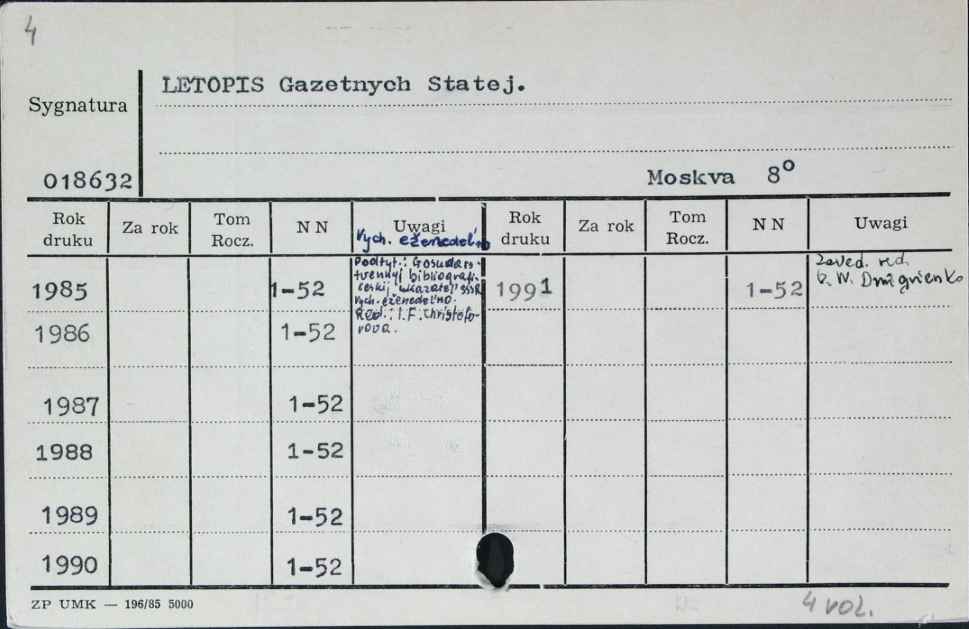 4
LETOPIS Gazetnych Statej.
Sygnatura
018632
Moskva 8°
Rok druku Za rok Tom Rocz. N N Uwagi Rok druku Za rok Tom Rocz. N N Uwagi
Vych. eženedel'no
1985 1-52
Podtyt.: Gosudars-
tvennyj bibliografi-
českij ukazatel' SSSR
Vych. eženedel'no.
Red.: I.F. Christofo-
rova.
1991 1-52
Zaved. red.
1986 1-52
1987 1-52
1988 1-52
1989 1-52
1990 1-52
ZP UMK — 196/85 5000
4 vol.